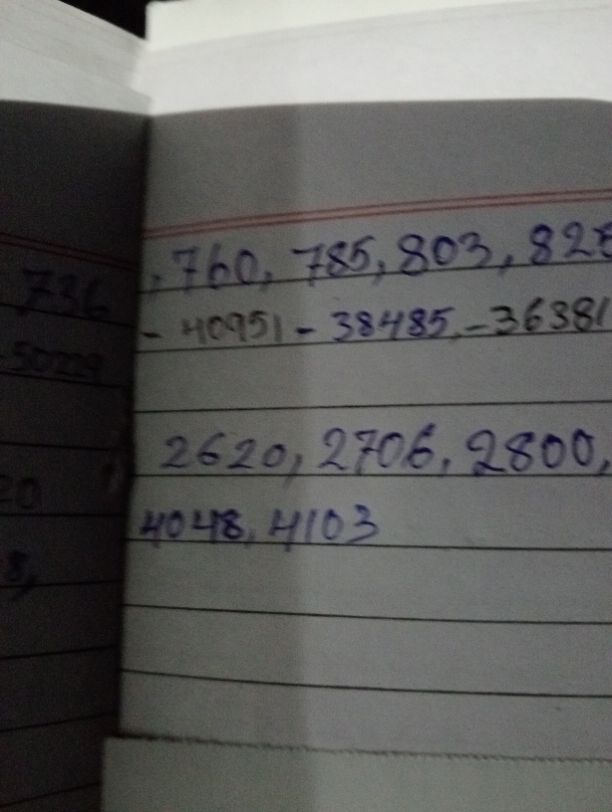 736
, 760, 785, 803, 828
- 40951 - 38485, - 36381
2620, 2706, 2800,
20
4048, 4103
8,